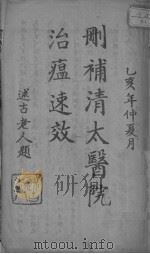 乙亥年仲夏月
刪補清太醫院
治瘟速效
述古老人題
mtoou.info
mtoou.info